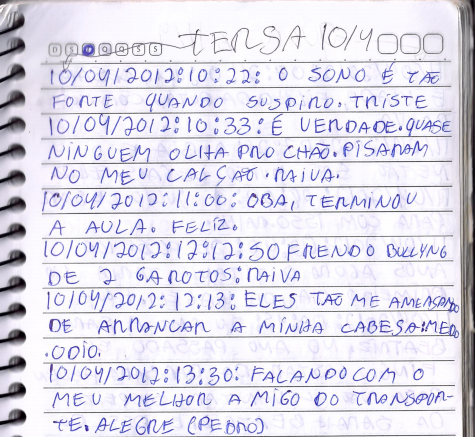 D S T Q Q S S TERSA 10/4
10/04/2012:10:22: O SONO É TÃO
FORTE QUANDO SUSPIRO. TRISTE
10/04/2012:10:33: É VERDADE. QUASE
NINGUEM OLHA PRO CHÃO. PISARAM
NO MEU CALÇÃO. RAIVA.
10/04/2012:11:00: OBA, TERMINOU
A AULA. FELIZ.
10/04/2012:12:12: SOFRENDO BULLYNG
DE 2 GAROTOS: RAIVA
10/04/2012:12:13: ELES TÃO ME AMEASANDO
DE ARRANCAR A MINHA CABESA: MEDO
.ODIO.
10/04/2012:13:30: FALANDO COM O
MEU MELHOR AMIGO DO TRANSPOR-
TE. ALEGRE (PEDRO)